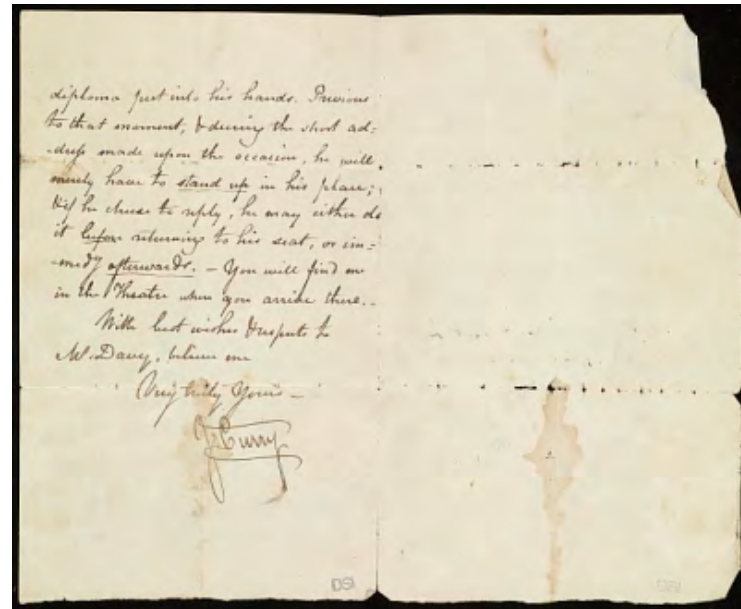 diploma put into his hands. Previous
to that moment, & during the short ad=
-dress made upon the occasion, he will
merely have to stand up in his place;
& if he chuse to reply, he may either do
it before returning to his seat, or im=
-medy afterwards. – You will find me
in the Theatre when you arrive there. –
With best wishes & respects to
Mr. Davy, believe me
Very truly Yours –
J. Curry
DSI
DSI